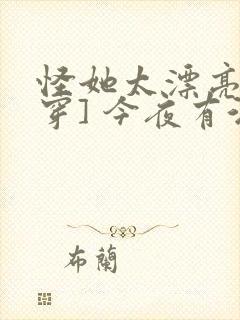 怪她太漂亮
穿]今夜有
布蘭